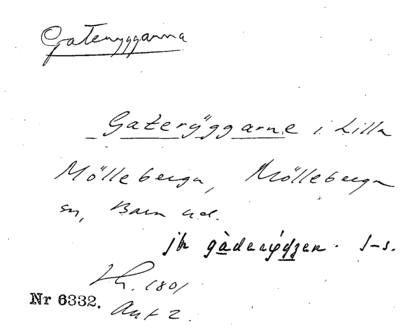 Gateryggarna
Gaterÿggarne i Lilla
Mölleberga, Mölleberga
sn, Bara hd.
jfr
Lh. 1801
Nr 6332. Akt 2.